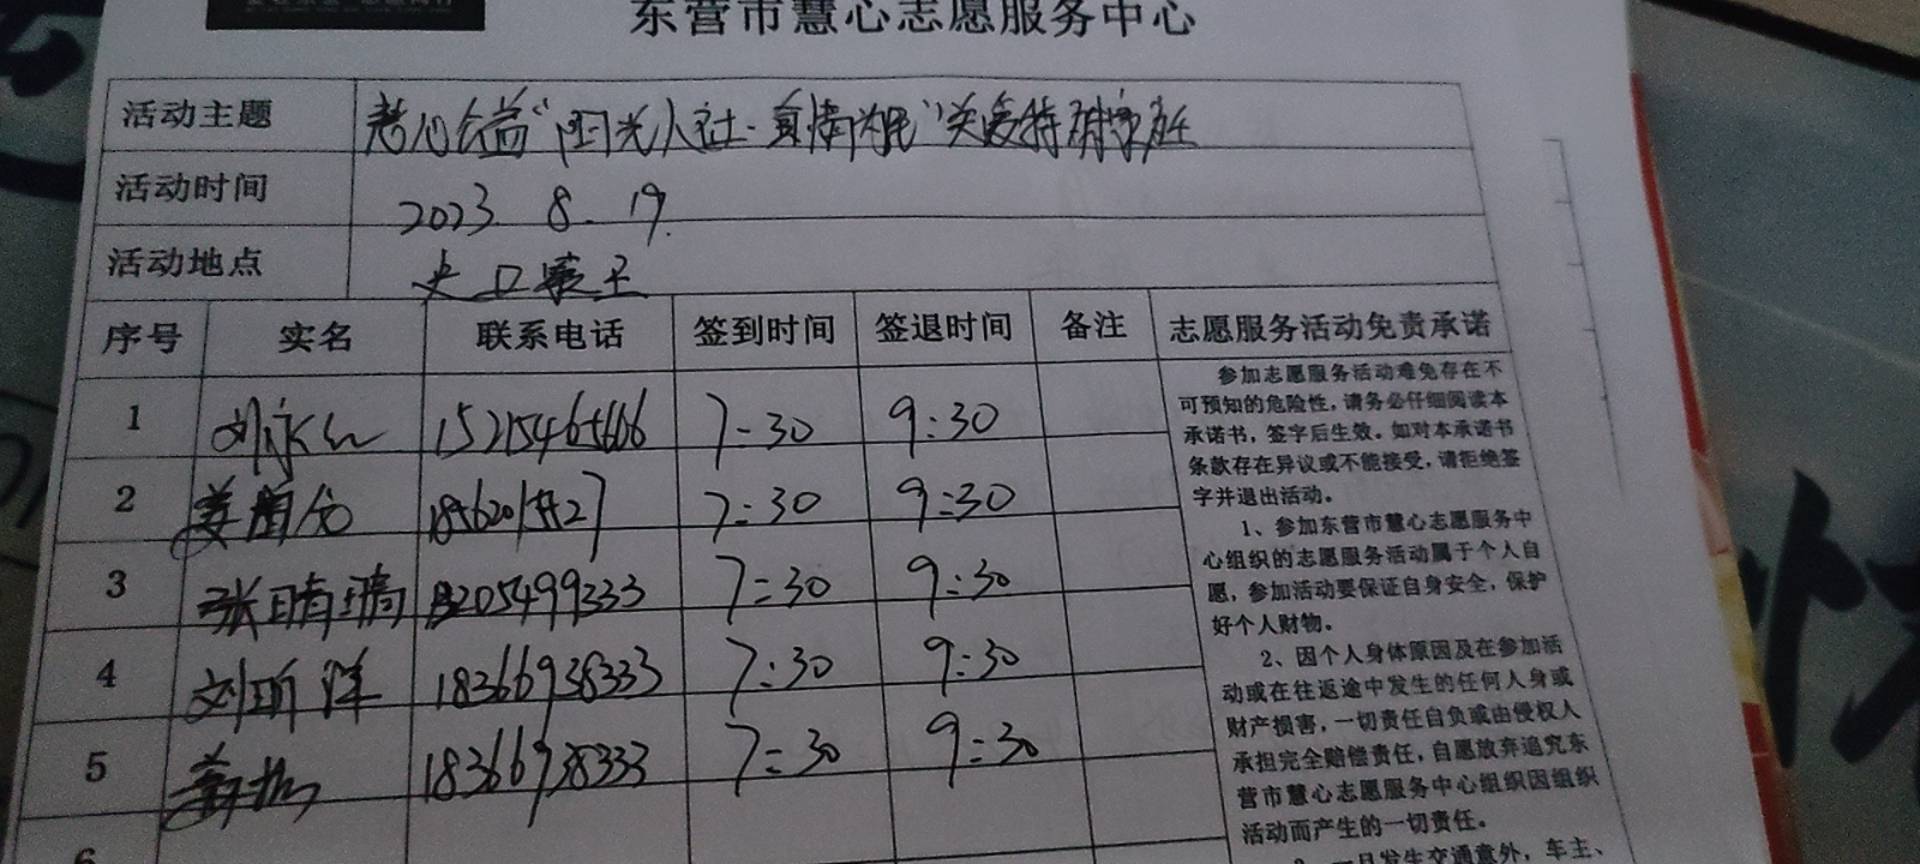 东营市慧心志愿服务中心
活动主题 慧心公益“阳光人社·真情为民”关爱特殊家庭
活动时间 2023. 8. 19.
活动地点 史口
序号 实名 联系电话 签到时间 签退时间 备注 志愿服务活动免责承诺
1 刘永红 7:30 9:30
2 姜 7:30 9:30
3 张晴 8205499333 7:30 9:30
4 刘昕洋 18366938333 7:30 9:30
5 18366938333 7:30 9:30
6
参加志愿服务活动难免存在不
可预知的危险性，请务必仔细阅读本
承诺书，签字后生效。如对本承诺书
条款存在异议或不能接受，请拒绝签
字并退出活动。
1、参加东营市慧心志愿服务中
心组织的志愿服务活动属于个人自
愿，参加活动要保证自身安全，保护
好个人财物。
2、因个人身体原因及在参加活
动或在往返途中发生的任何人身或
财产损害，一切责任自负或由侵权人
承担完全赔偿责任，自愿放弃追究东
营市慧心志愿服务中心组织因组织
活动而产生的一切责任。
3、一旦发生交通意外，车主、